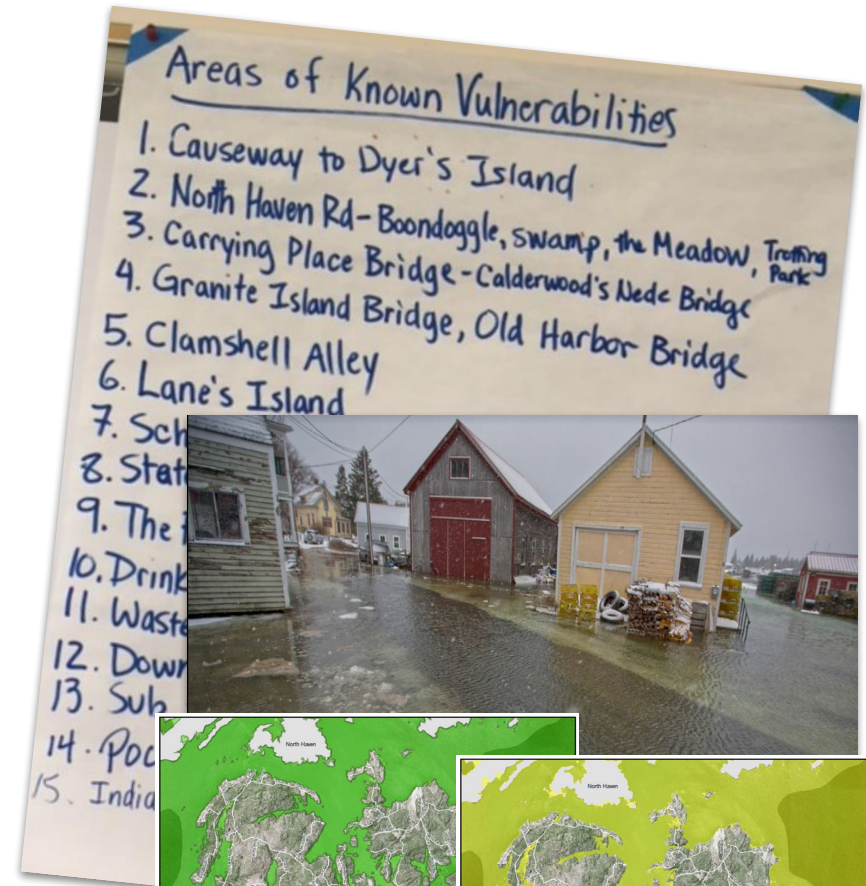 Areas of Known Vulnerabilities
1. Causeway to Dyer's Island
2. North Haven Rd - Boondoggle, swamp, the Meadow, Trotting Park
3. Carrying Place Bridge - Calderwood's Neck Bridge
4. Granite Island Bridge, Old Harbor Bridge
5. Clamshell Alley
6. Lane's Island
7. Sch
8. Stat
9. The
10. Drink
11. Waste
12. Down
13. Sub
14.
15. India
North Haven
North Haven